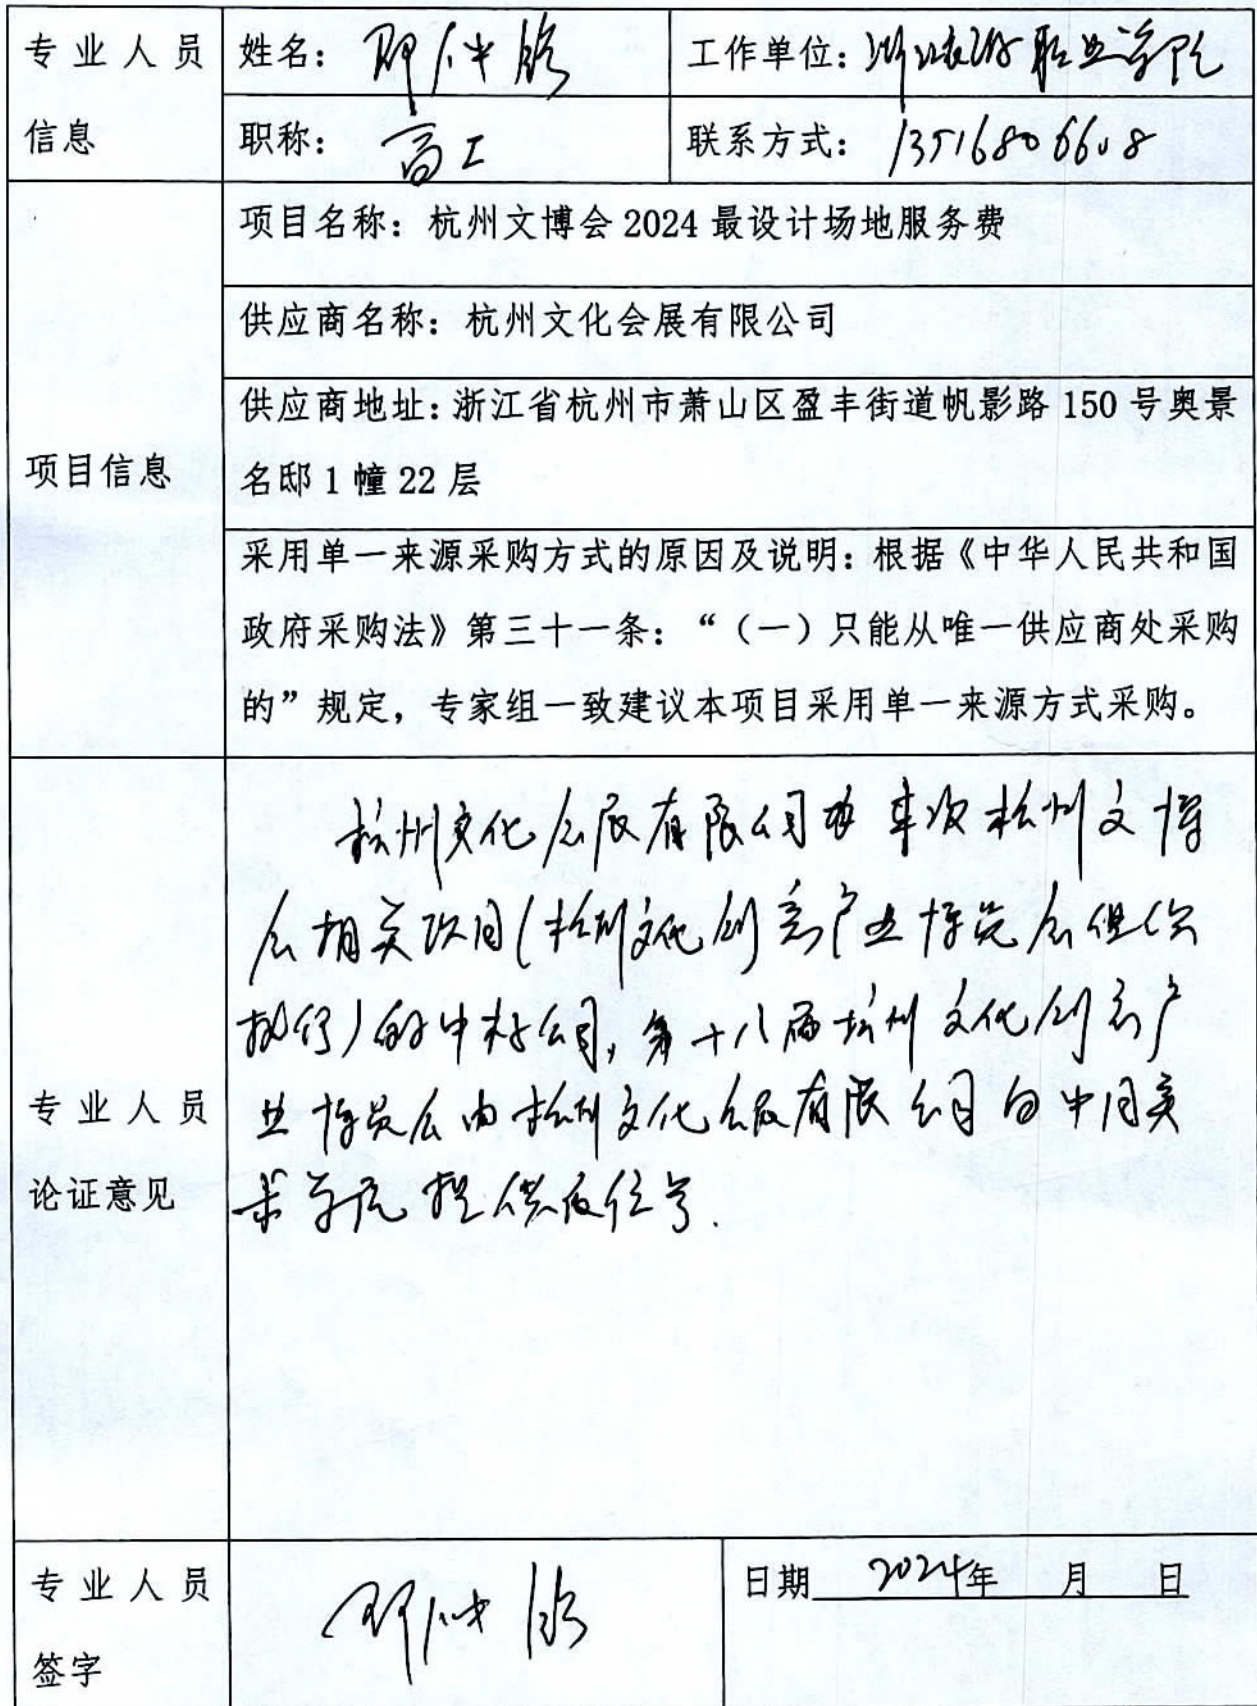 专业人员信息
姓名：
工作单位：浙江旅游职业学院
职称：高工
联系方式：13516806608
项目信息
项目名称：杭州文博会 2024 最设计场地服务费
供应商名称：杭州文化会展有限公司
供应商地址：浙江省杭州市萧山区盈丰街道帆影路 150 号奥景
名邸 1 幢 22 层
采用单一来源采购方式的原因及说明：根据《中华人民共和国
政府采购法》第三十一条：“（一）只能从唯一供应商处采购
的”规定，专家组一致建议本项目采用单一来源方式采购。
专业人员
论证意见
杭州文化会展有限公司为本次杭州文博
会相关项目（杭州文化创意产业博览会组织
执行）的中标公司，第十八届杭州文化创意产
业博览会由杭州文化会展有限公司向中国美
术学院提供展位号.
专业人员
签字
日期 2024年 月 日